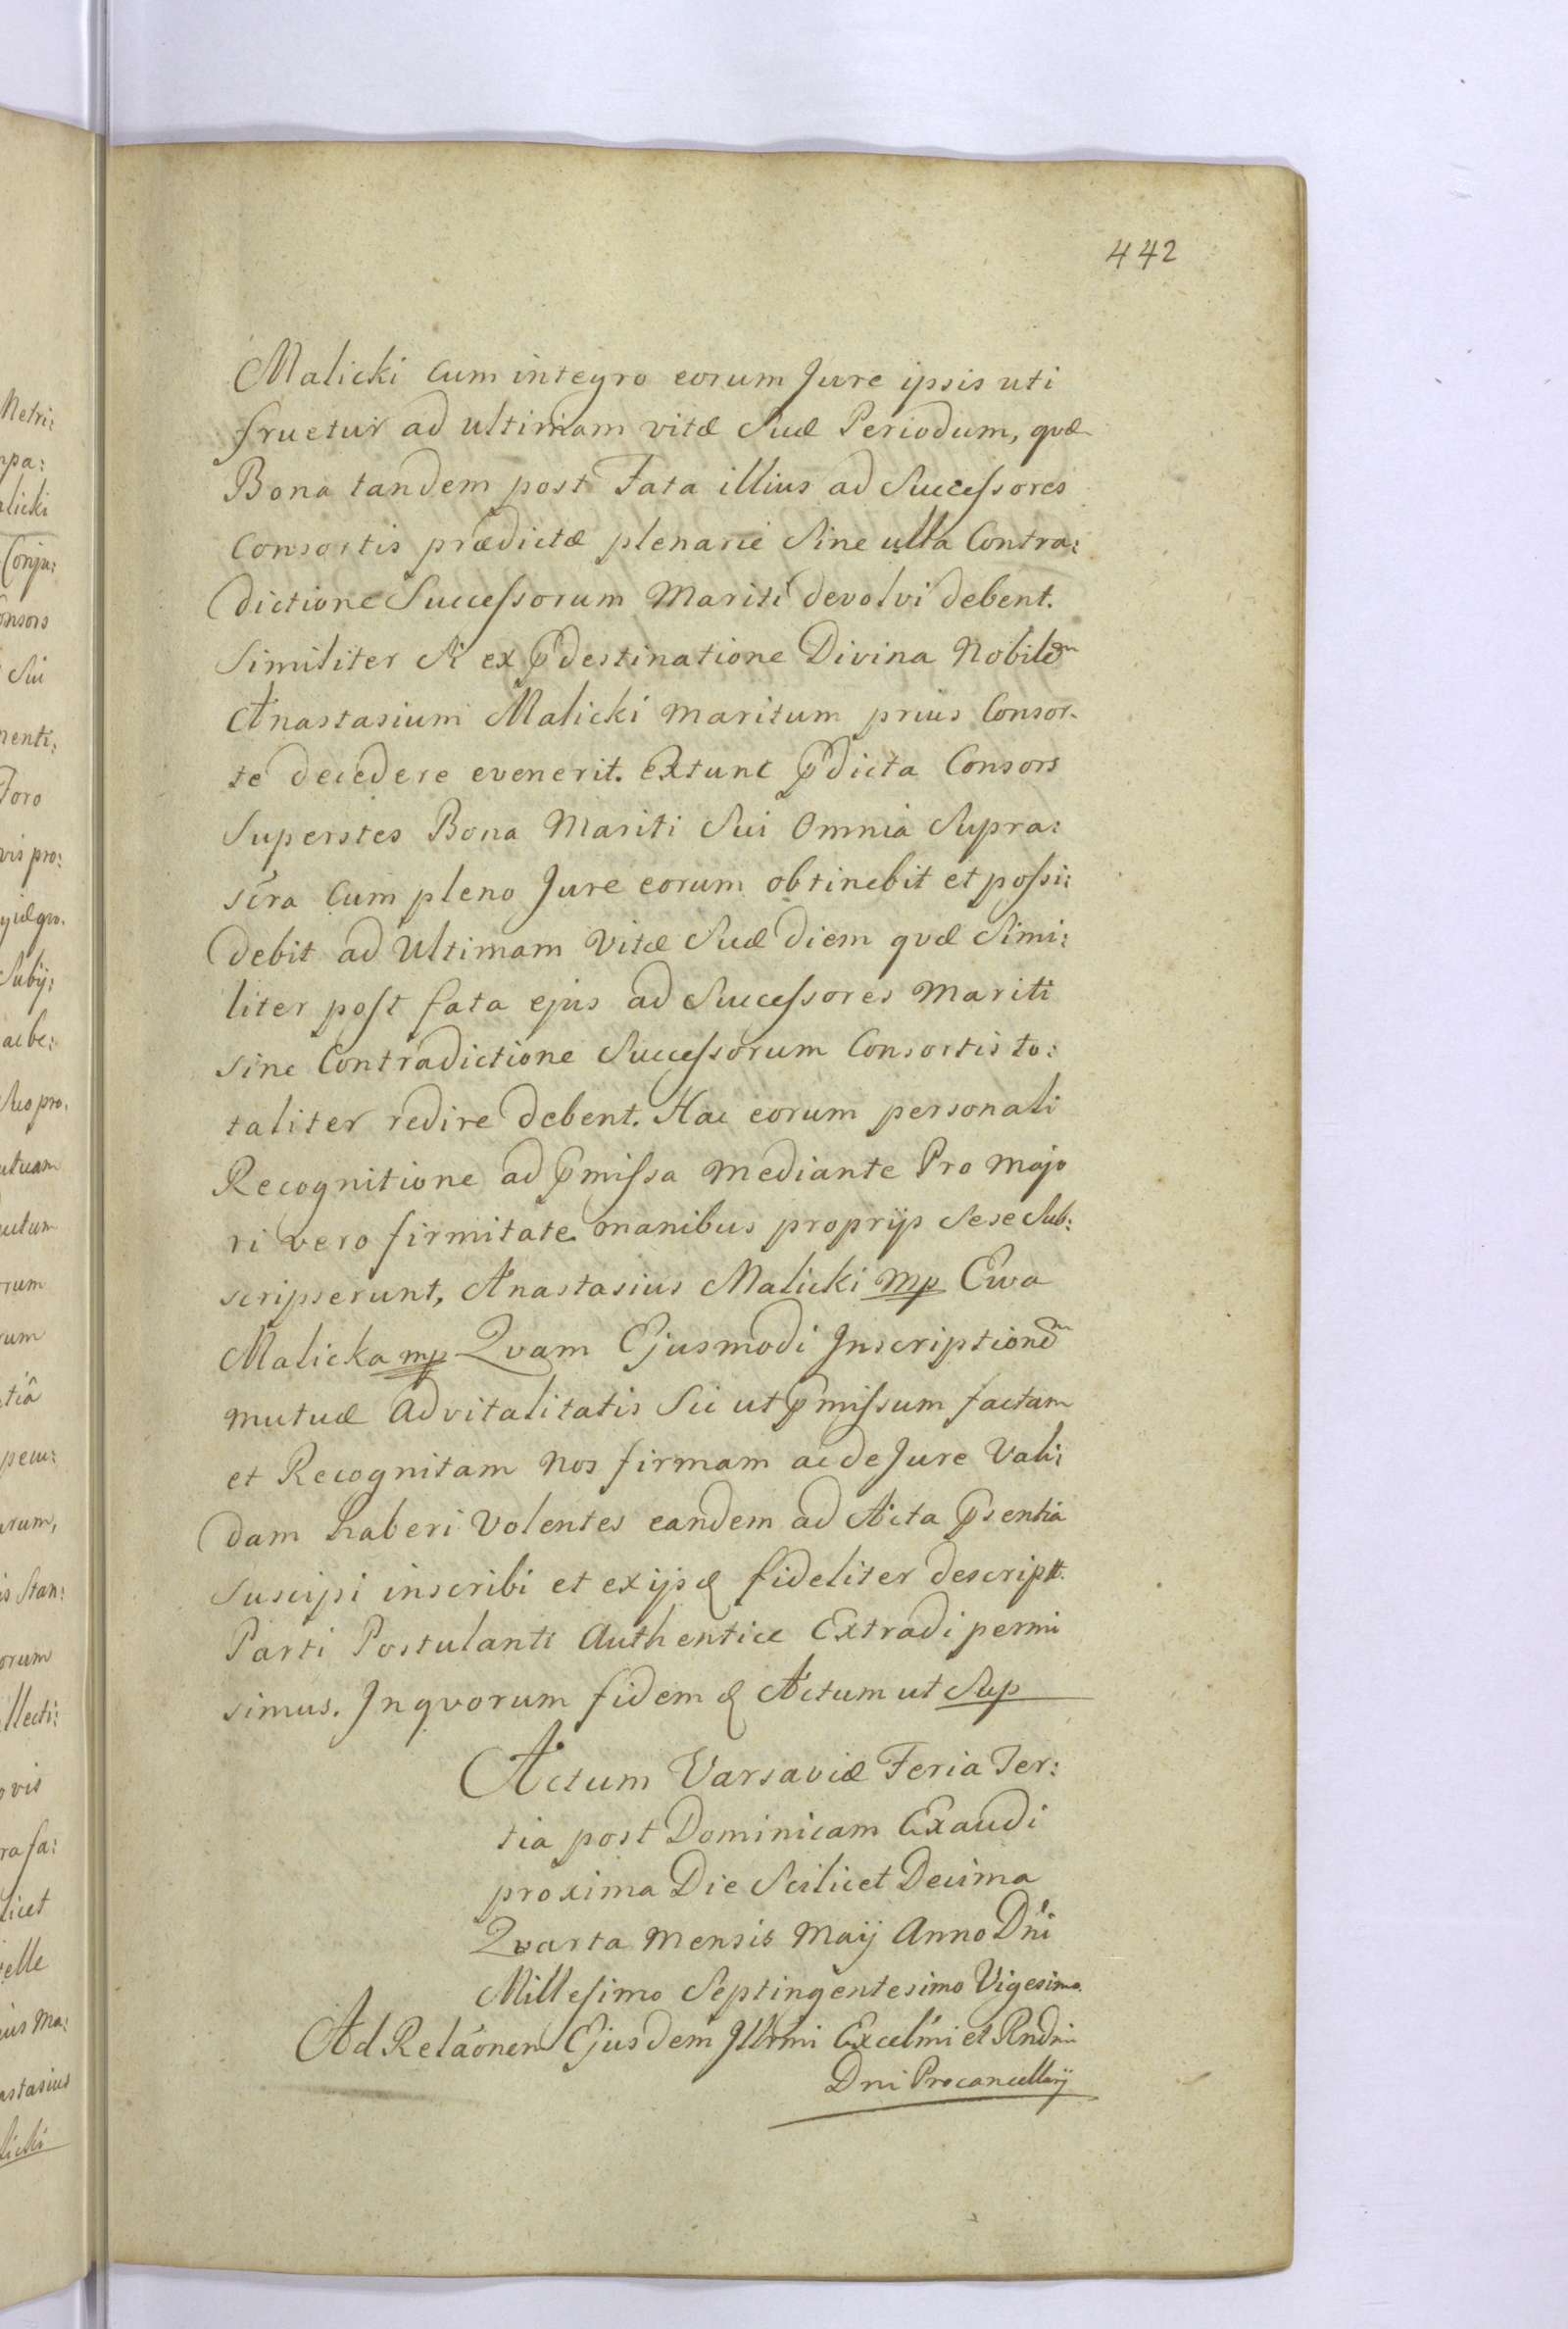 442
Malicki cum integro eorum Jure ipsis uti
fruetur ad ultimam vitæ Suæ Periodum, qvæ
Bona tandem post Fata illius ad Successores
Consortis prædictæ plenarie Sine ulla Contra:
dictione Successorum Mariti devolvi debent.
Similiter Si ex pdestinatione Divina Nobilem
Anastasium Malicki maritum prius Consor-
te decedere evenerit. extunc pdicta Consors
Superstes Bona Mariti Sui Omnia Supra:
scra Cum pleno Jure eorum obtinebit et possi:
debit ad Ultimam Vitæ Suæ diem qvæ Simi:
liter post fata ejus ad Successores Mariti
sine Contradictione Successorum Consortis to:
taliter redire debent. Hac eorum personali
Recognitione ad pmissa mediante Pro majo
ri vero firmitate manibus proprijs Sese Sub:
scripserunt, Anastasius Malicki mp Ewa
Malicka mp Qvam Ejusmodi Inscriptionem
mutuæ Advitalitatis Sic ut pmissum factam
et Recognitam Nos firmam ac de Jure Vali:
dam haberi Volentes eandem ad Acta psentia
Suscipi inscribi et ex ijsd fideliter descript.
Parti Postulanti Authentice Extradi permi
simus. In qvorum fidem & Actum ut Sup
Actum Varsaviæ Feria Ter:
tia post Dominicam Exaudi
proxima Die Scilicet Decima
Qvarta Mensis Maij Anno Dni
Millesimo Septingentesimo Vigesimo.
Ad Relaonem Ejusdem Illrmi Excelmi et Rndmi
Dni Procancellarij